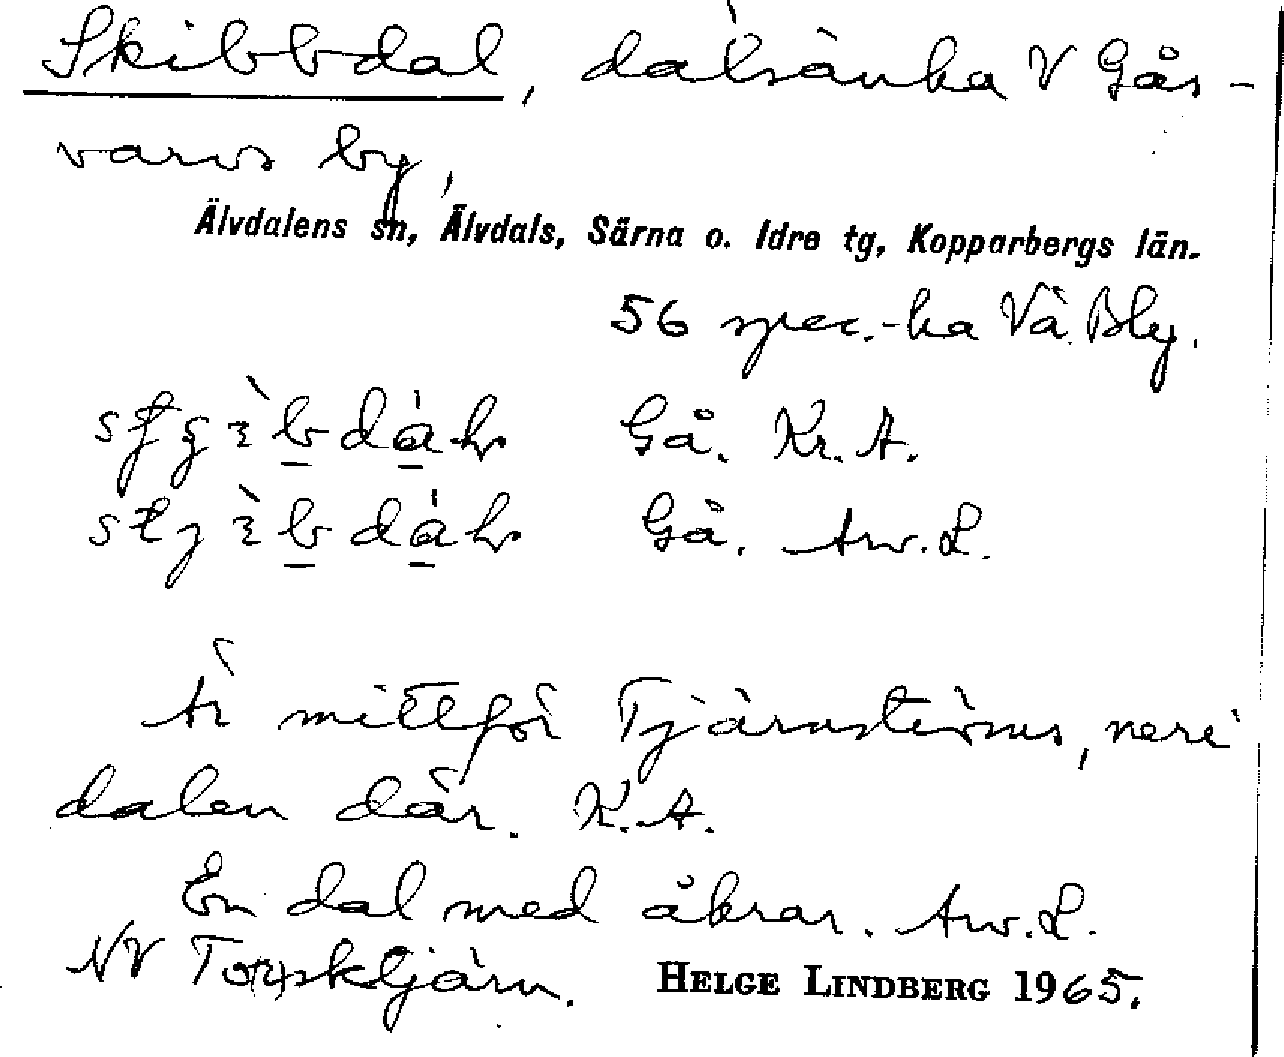 Skibbdal, dalsänka V Gås-
varvs by,
Älvdalens sn, Älvdals, Särna o. Idre tg, Kopparbergs län.
56 spec.-ka Vä. Bly.
Gå. Kr. A.
Gå. Aw. L.
Är mittför Tjärnströms, neri
dalen där. K. A.
En dal med åkrar. Aw. L.
NV Torsktjärn.
HELGE LINDBERG 1965.